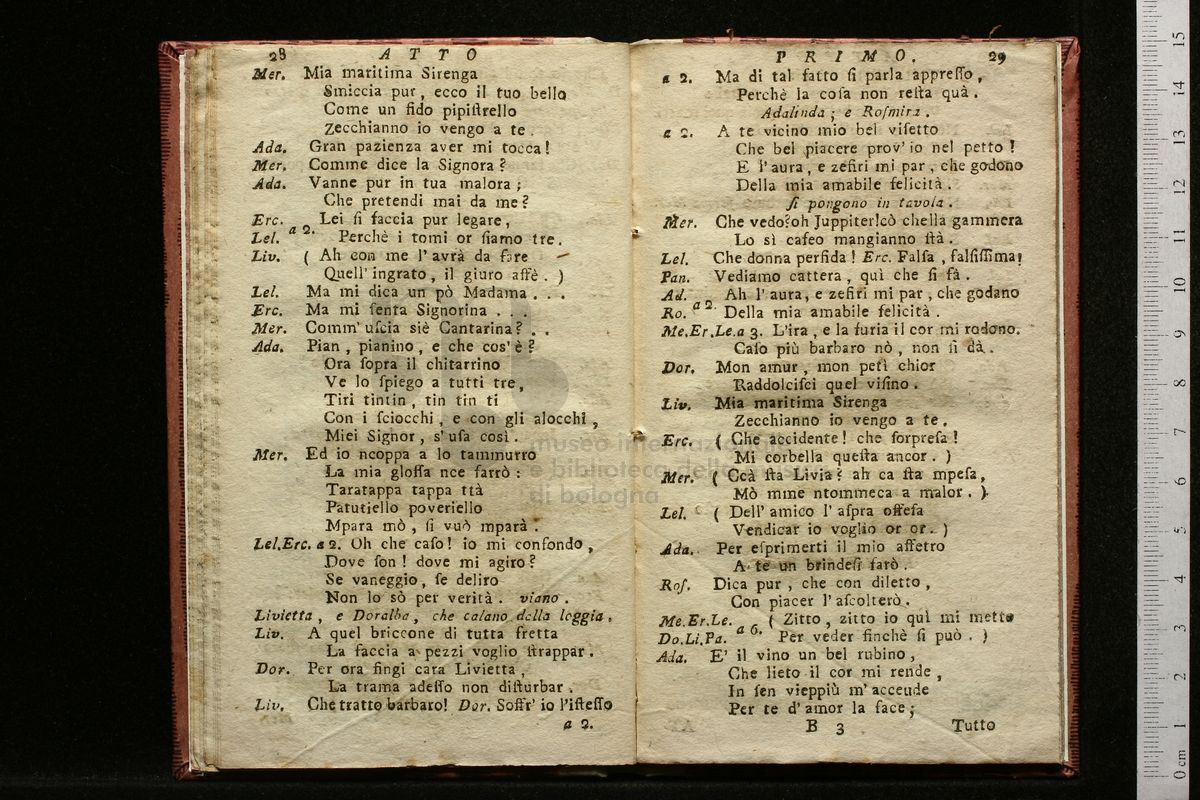 28 ATTO
Mer. Mia maritima Sirenga
Smiccia pur, ecco il tuo bello
Come un fido pipiſtrello
Zecchianno io vengo a te.
Ada. Gran pazienza aver mi tocca!
Mer. Comme dice la Signora?
Ada. Vanne pur in tua malora;
Che pretendi mai da me?
Erc. Lei ſi faccia pur legare,
Lel. a 2. Perchè i tomi or ſiamo tre.
Liv. (Ah con me l'avrà da fare
Quell'ingrato, il giuro affè.)
Lel. Ma mi dica un pò Madama...
Erc. Ma mi ſenta Signorina...
Mer. Comm'uſcia siè Cantarina?..
Ada. Pian, pianino, e che cos'è?
Ora ſopra il chitarrino
Ve lo ſpiego a tutti tre,
Tiri tintin, tin tin ti
Con i ſciocchi, e con gli alocchi,
Miei Signor, s'uſa così.
Mer. Ed io ncoppa a lo tammurro
La mia gloſſa nce farrò:
Taratappa tappa ttà
Patutiello poveriello
Mpara mò, ſi vuò mparà.
Lel.Erc. a 2. Oh che caſo! io mi confondo,
Dove ſon! dove mi agiro?
Se vaneggio, ſe deliro
Non lo sò per verità. viano.
Livietta, e Doralba, che calano della loggia.
Liv. A quel briccone di tutta fretta
La faccia a pezzi voglio ſtrappar.
Dor. Per ora fingi cara Livietta,
La trama adeſſo non diſturbar.
Liv. Che tratto barbaro! Dor. Soffr'io l'iſteſſo
a 2.
PRIMO. 29
a 2. Ma di tal fatto ſi parla appreſſo,
Perchè la coſa non reſta quà.
Adalinda; e Roſmira.
a 2. A te vicino mio bel viſetto
Che bel piacere prov'io nel petto!
E l'aura, e zefiri mi par, che godono
Della mia amabile felicità.
ſi pongono in tavola.
Mer. Che vedo?oh Juppiter!cò chella gammera
Lo sì cafeo mangianno ſtà.
Lel. Che donna perfida! Erc. Falſa, falſiſſima!
Pan. Vediamo cattera, quì che ſi fà.
Ad. Ah l'aura, e zefiri mi par, che godano
Ro. a 2 Della mia amabile felicità.
Me.Er.Le.a 3. L'ira, e la furia il cor mi rodono.
Caſo più barbaro nò, non ſi dà.
Dor. Mon amur, mon peti chior
Raddolciſci quel viſino.
Liv. Mia maritima Sirenga
Zecchianno io vengo a te.
Erc. (Che accidente! che ſorpreſa!
Mi corbella queſta ancor.)
Mer. (Ccà ſta Livia? ah ca ſta mpeſa,
Mò mme ntommeca a malor.)
Lel. (Dell'amico l'aſpra offeſa
Vendicar io voglio or or.)
Ada. Per eſprimerti il mio affetto
A te un brindeſi farò.
Roſ. Dica pur, che con diletto,
Con piacer l'aſcolterò.
Me.Er.Le. (Zitto, zitto io quì mi metto
Do.Li.Pa. a 6. Per veder finchè ſi può.)
Ada. E' il vino un bel rubino,
Che lieto il cor mi rende,
In ſen vieppiù m'accende
Per te d'amor la face;
B 3 Tutto
museo internazionale
e biblioteca della musica
di bologna
0 cm 1 2 3 4 5 6 7 8 9 10 11 12 13 14 15